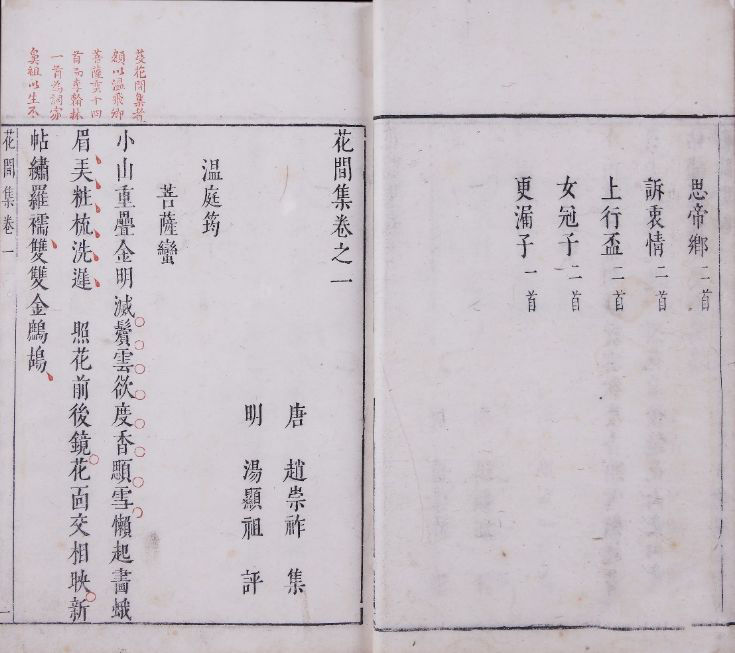 思帝鄉二首
訴衷情二首
上行盃二首
女冠子二首
更漏子一首
花間集卷之一
唐 趙崇祚 集
明 湯顯祖 評
温庭筠
菩薩蠻
小山重疊金明滅鬢雲欲度香顋雪懶起畵蛾
眉美粧梳洗遲 照花前後鏡花面交相映新
帖繡羅襦雙雙金鷓鴣
花間集卷一
芟花間集者
額以溫飛卿
菩薩蠻十四
首而李翰林
一首為詞家
鼻祖以生不